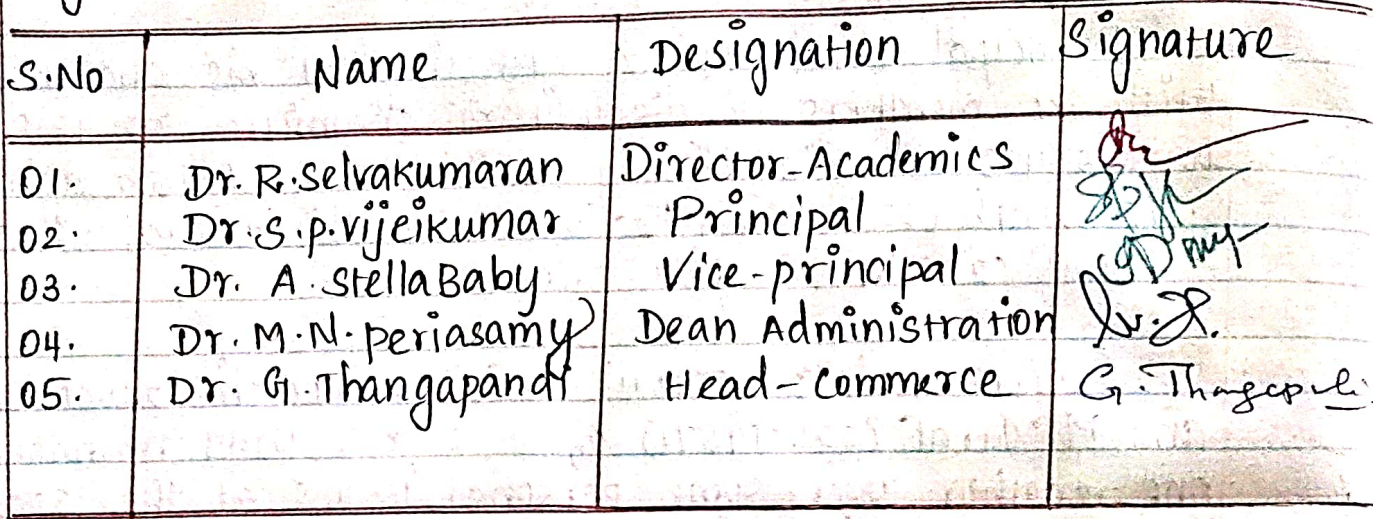 S.No Name Designation Signature
01. Dr. R. Selvakumaran Director-Academics
02. Dr. S.P. Vijeikumar Principal
03. Dr. A. Stella Baby Vice-principal
04. Dr. M.N. Periasamy Dean Administration
05. Dr. G. Thangapandi Head-Commerce